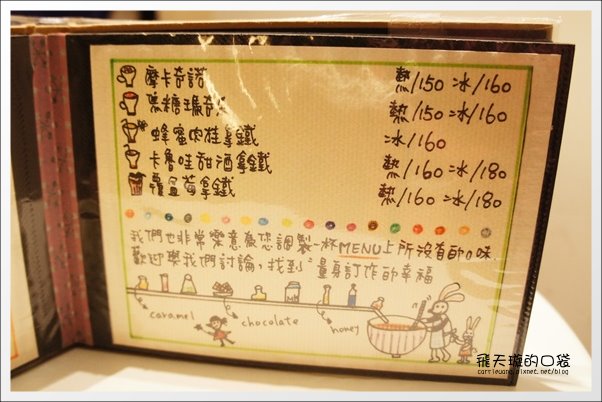 摩卡奇諾 熱/150 冰/160
焦糖瑪奇朵 熱/150 冰/160
蜂蜜肉桂拿鐵 冰/160
卡魯哇甜酒拿鐵 熱/160 冰/180
覆盆莓拿鐵 熱/160 冰/180
我們也非常樂意為您調製一杯MENU上所沒有的口味
歡迎與我們討論，找到"量身訂作的幸福
caramel
chocolate
honey
飛天璇的口袋
carrieuang.pixnet.net/blog